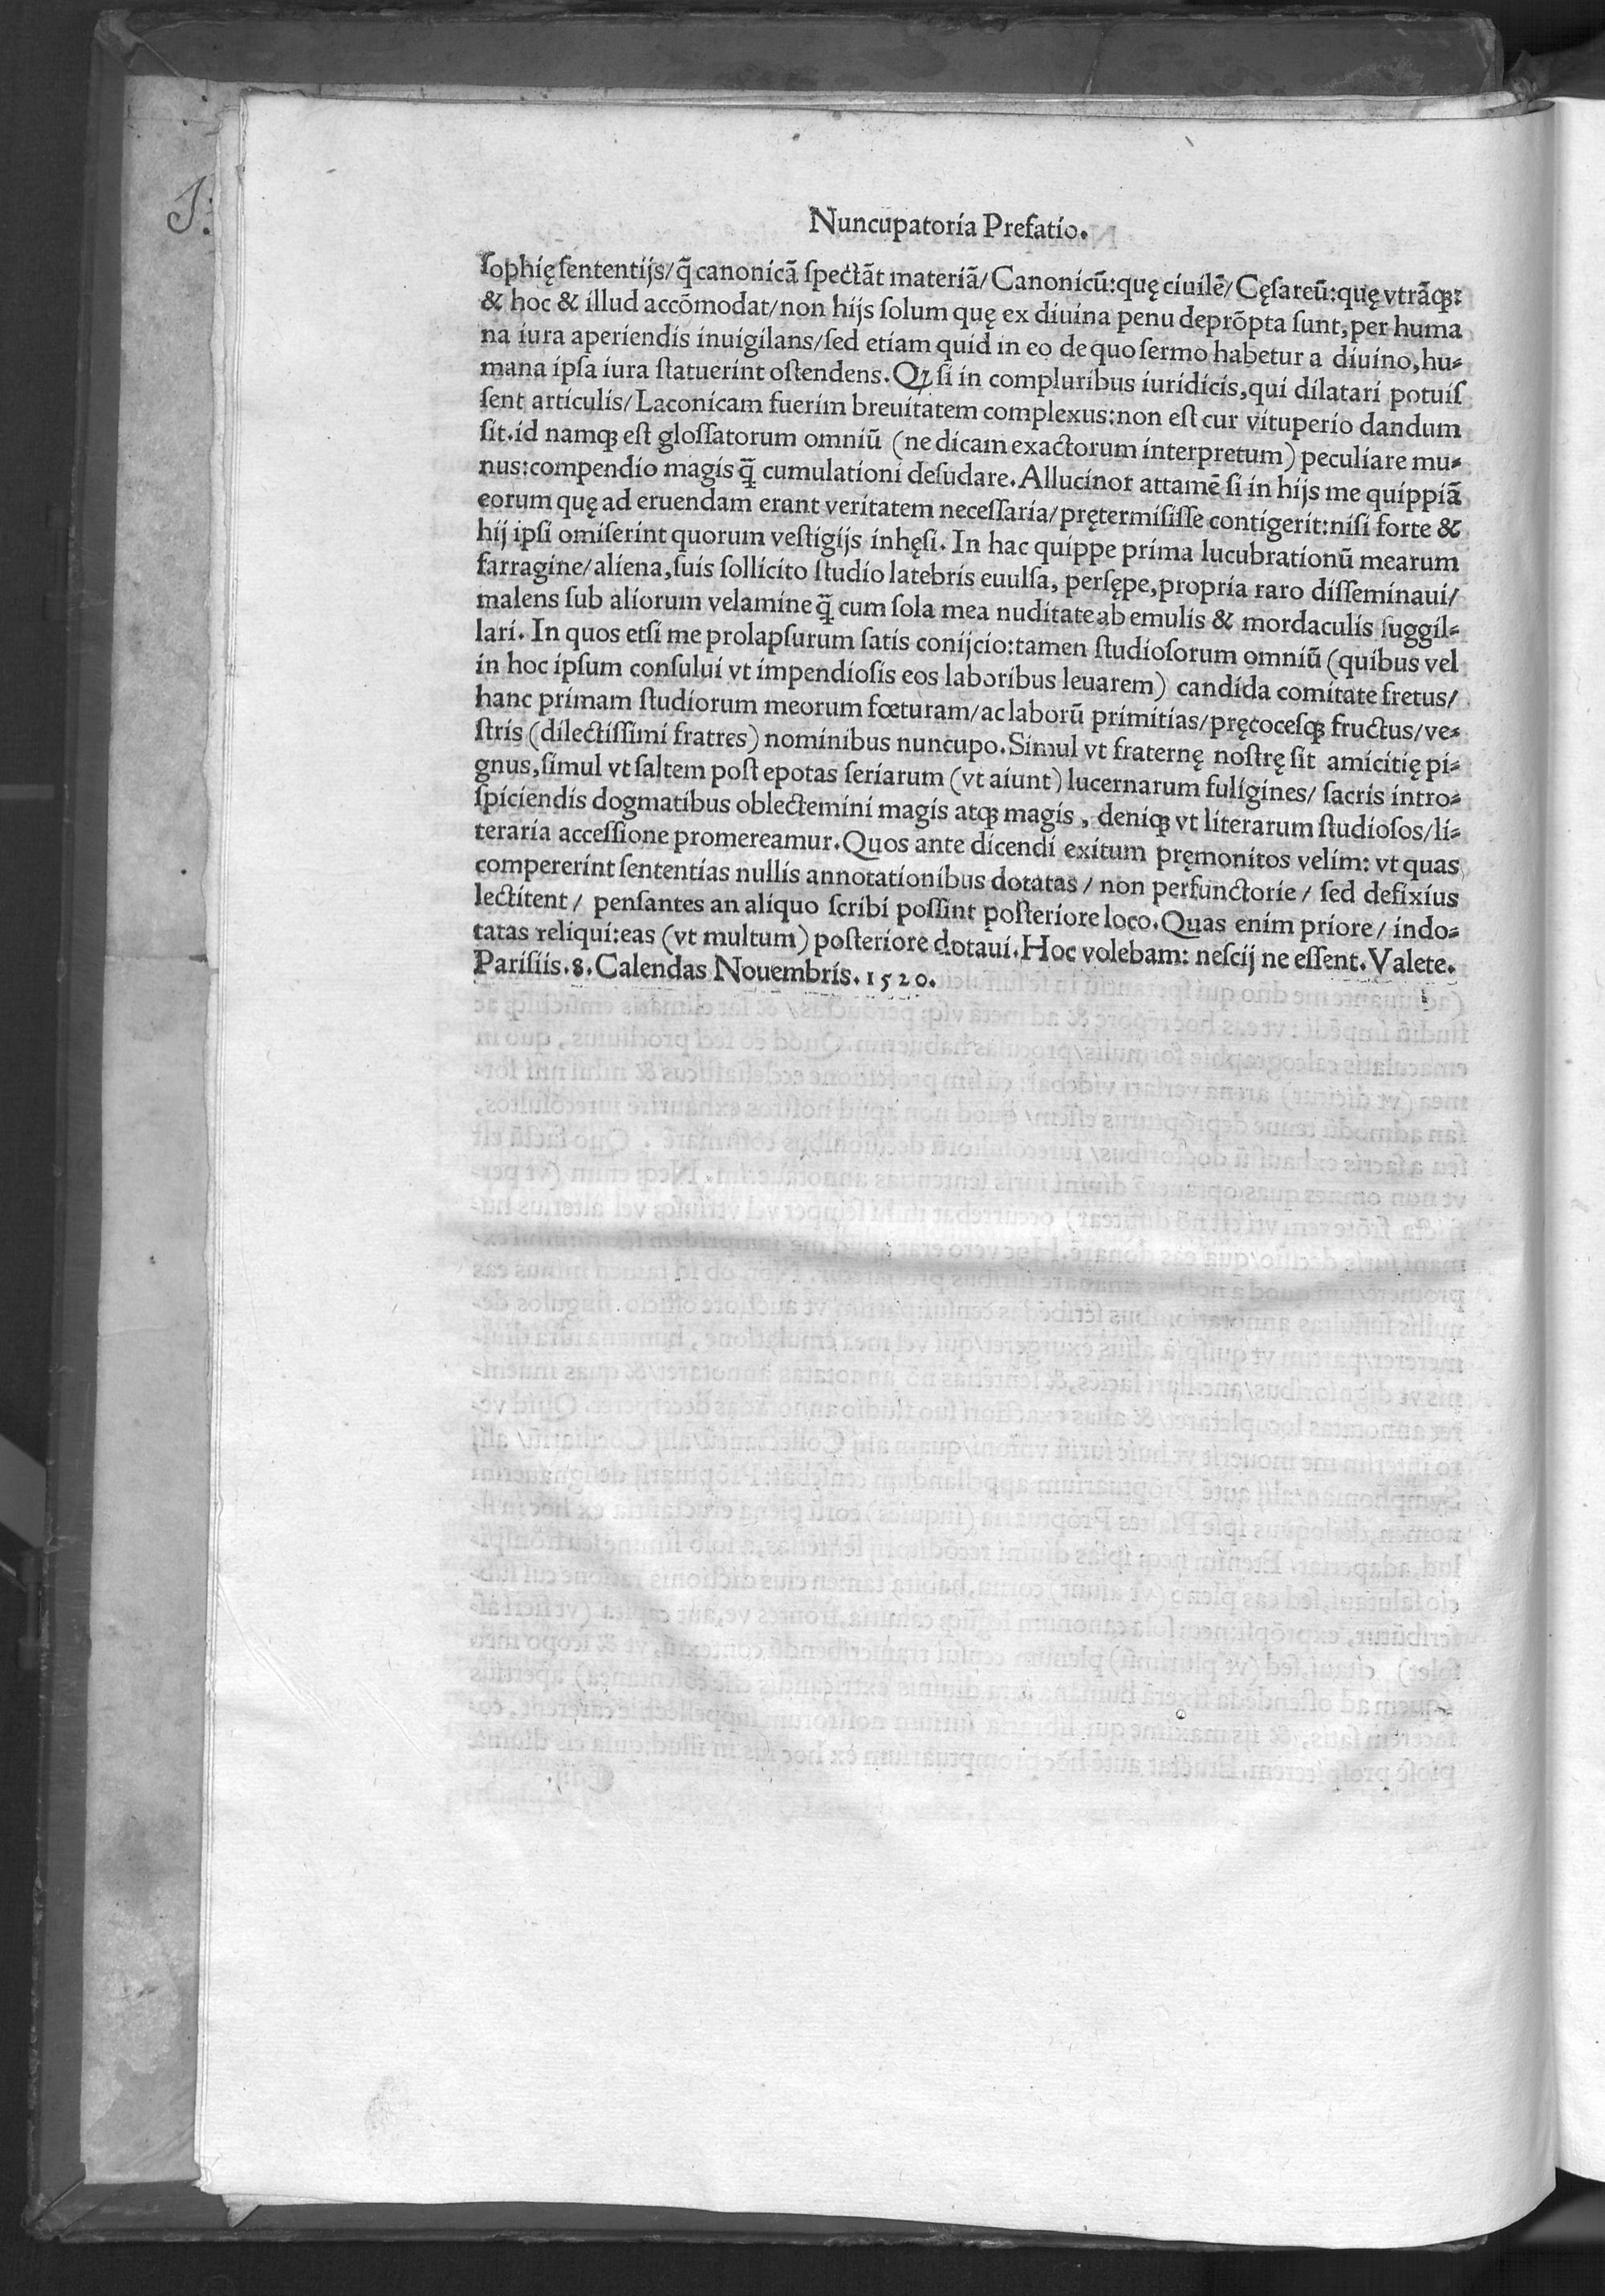 J:
Nuncupatoria Prefatio.
ſophię ſententijs/q̃ canonicã ſpectãt materiã/Canonicũ:quę ciuilẽ/Cęſareũ:quę vtrãq;:
& hoc & illud accõmodat/non hijs ſolum quę ex diuina penu deprõpta ſunt,per huma
na iura aperiendis inuigilans/ſed etiam quid in eo de quo ſermo habetur a diuino,hu-
mana ipſa iura ſtatuerint oſtendens.Qꝫ ſi in compluribus iuridicis,qui dilatari potuiſ
ſent articulis/Laconicam fuerim breuitatem complexus:non eſt cur vituperio dandum
ſit.id namq; eſt gloſſatorum omniũ (ne dicam exactorum interpretum) peculiare mu-
nus:compendio magis q̃ cumulationi deſudare.Allucinor attamẽ ſi in hijs me quippiã
eorum quę ad eruendam erant veritatem neceſſaria/prętermiſiſſe contigerit:niſi forte &
hij ipſi omiſerint quorum veſtigijs inhęſi. In hac quippe prima lucubrationũ mearum
farragine/aliena,ſuis ſollicito ſtudio latebris euulſa, perſępe,propria raro diſſeminaui/
malens ſub aliorum velamine q̃ cum ſola mea nuditate ab emulis & mordaculis ſuggil-
lari. In quos etſi me prolapſurum ſatis conijcio:tamen ſtudioſorum omniũ (quibus vel
in hoc ipſum conſului vt impendioſis eos laboribus leuarem) candida comitate fretus/
hanc primam ſtudiorum meorum fœturam/ac laborũ primitias/pręcoceſq; fructus/ve-
ſtris (dilectiſſimi fratres) nominibus nuncupo.Simul vt fraternę noſtrę ſit amicitię pi-
gnus,ſimul vt ſaltem poſt epotas ſeriarum (vt aiunt) lucernarum fuligines/ ſacris intro-
ſpiciendis dogmatibus oblectemini magis atq; magis, deniq; vt literarum ſtudioſos/li-
teraria acceſſione promereamur.Quos ante dicendi exitum pręmonitos velim: vt quas
compererint ſententias nullis annotationibus dotatas / non perfunctorie / ſed defixius
lectitent / penſantes an aliquo ſcribi poſſint poſteriore loco.Quas enim priore / indo-
tatas reliqui:eas (vt multum) poſteriore dotaui.Hoc volebam: neſcij ne eſſent.Valete.
Pariſiis.8.Calendas Nouembris.1520.